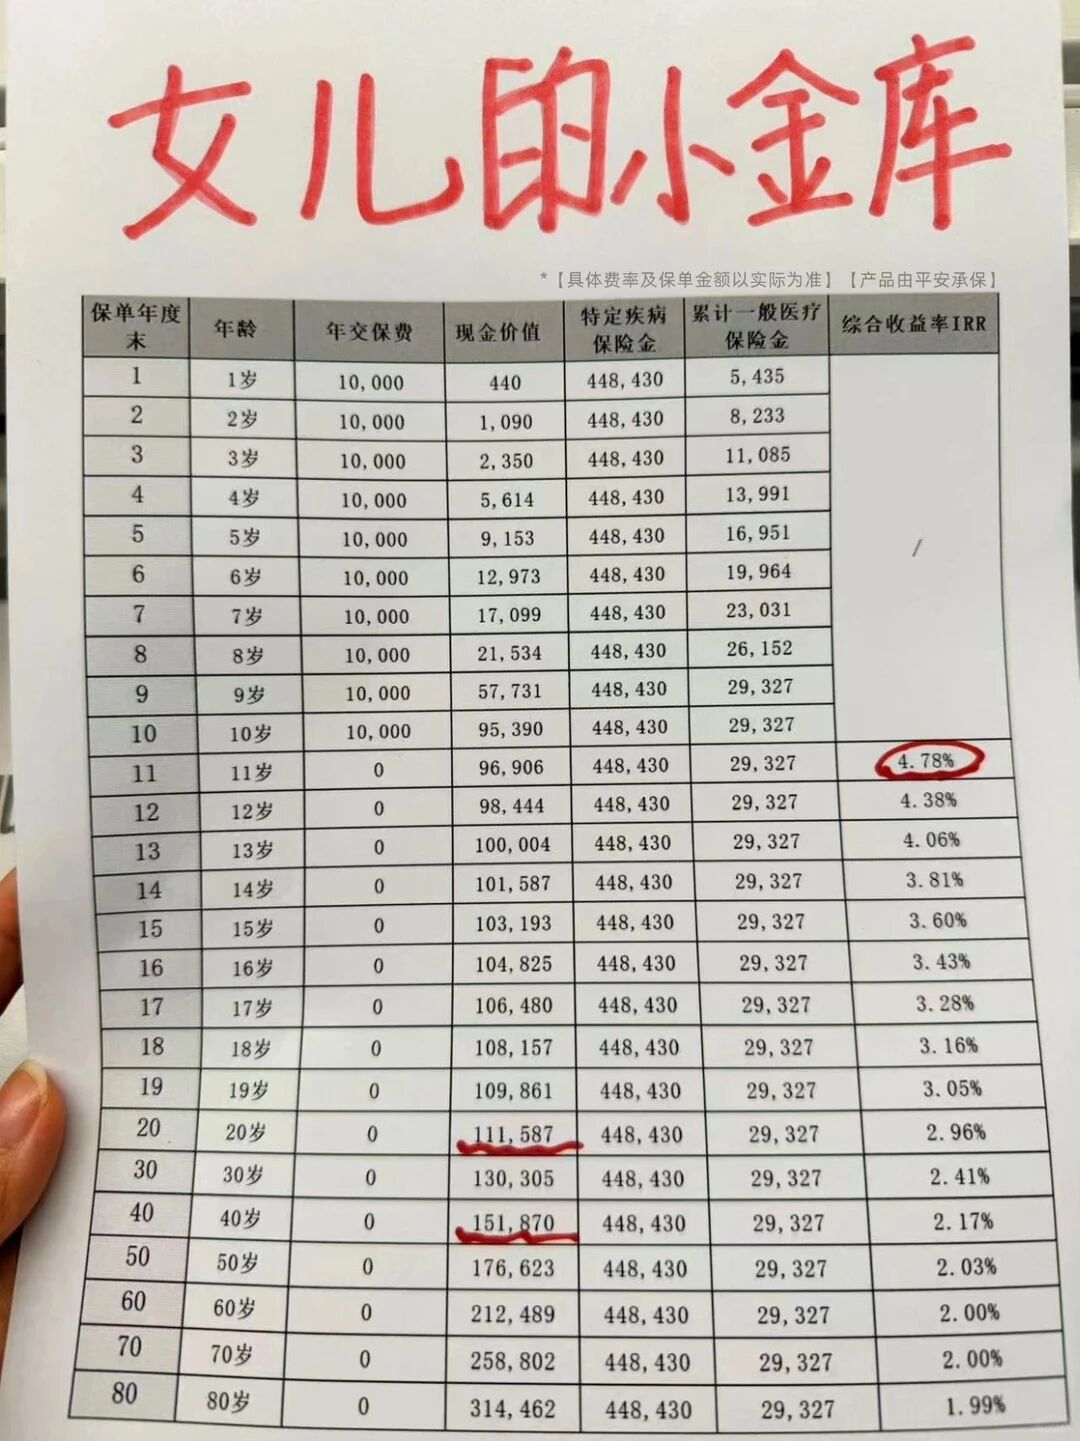 女儿的小金库
*【具体费率及保单金额以实际为准】【产品由平安承保】
保单年度末 年龄 年交保费 现金价值 特定疾病保险金 累计一般医疗保险金 综合收益率IRR
1 1岁 10,000 440 448,430 5,435 /
2 2岁 10,000 1,090 448,430 8,233
3 3岁 10,000 2,350 448,430 11,085
4 4岁 10,000 5,614 448,430 13,991
5 5岁 10,000 9,153 448,430 16,951
6 6岁 10,000 12,973 448,430 19,964
7 7岁 10,000 17,099 448,430 23,031
8 8岁 10,000 21,534 448,430 26,152
9 9岁 10,000 57,731 448,430 29,327
10 10岁 10,000 95,390 448,430 29,327
11 11岁 0 96,906 448,430 29,327 4.78%
12 12岁 0 98,444 448,430 29,327 4.38%
13 13岁 0 100,004 448,430 29,327 4.06%
14 14岁 0 101,587 448,430 29,327 3.81%
15 15岁 0 103,193 448,430 29,327 3.60%
16 16岁 0 104,825 448,430 29,327 3.43%
17 17岁 0 106,480 448,430 29,327 3.28%
18 18岁 0 108,157 448,430 29,327 3.16%
19 19岁 0 109,861 448,430 29,327 3.05%
20 20岁 0 111,587 448,430 29,327 2.96%
30 30岁 0 130,305 448,430 29,327 2.41%
40 40岁 0 151,870 448,430 29,327 2.17%
50 50岁 0 176,623 448,430 29,327 2.03%
60 60岁 0 212,489 448,430 29,327 2.00%
70 70岁 0 258,802 448,430 29,327 2.00%
80 80岁 0 314,462 448,430 29,327 1.99%